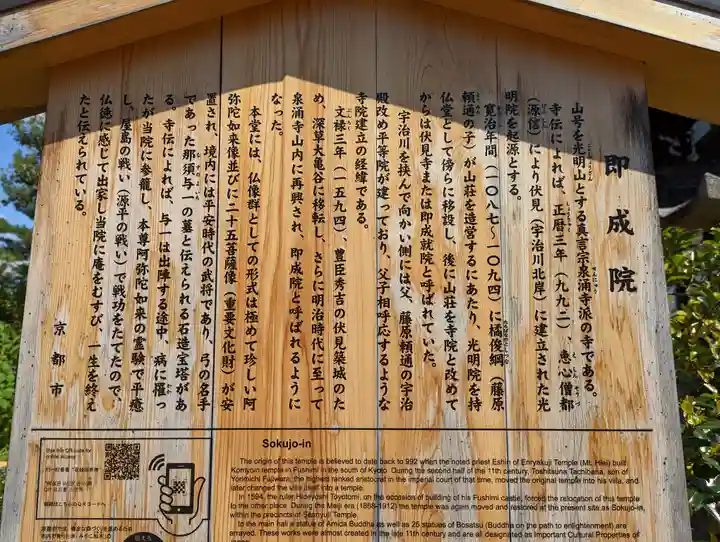 即成院
山号を光明山とする真言宗泉涌寺派の寺である。
寺伝によれば、正暦三年（九九二）、恵心僧都
（源信）により伏見（宇治川北岸）に建立された光
明院を起源とする。
寛治年間（一〇八七～一〇九四）に橘俊綱（藤原
頼通の子）が山荘を造営するにあたり、光明院を持
仏堂として傍らに移設し、後に山荘を寺院と改めて
からは伏見寺または即成就院と呼ばれていた。
宇治川を挟んで向かい側には父、藤原頼通の宇治
殿改め平等院が建っており、父子相呼応するような
寺院建立の経緯である。
文禄三年（一五九四）、豊臣秀吉の伏見築城のた
め、深草大亀谷に移転し、さらに明治時代に至って
泉涌寺山内に再興され、即成院と呼ばれるように
なった。
本堂には、仏像群としての形式は極めて珍しい阿
弥陀如来像並びに二十五菩薩像（重要文化財）が安
置され、境内には平安時代の武将であり、弓の名手
であった那須与一の墓と伝えられる石造宝塔があ
る。寺伝によれば、与一は出陣する途中、病に罹っ
たが当院に参籠し、本尊阿弥陀如来の霊験で平癒
し、屋島の戦い（源平の戦い）で戦功をたてたので、
仏徳に感じて出家し当院に庵をむすび、一生を終え
たと伝えられている。
京都市
Sokujo-in
The origin of this temple is believed to date back to 992 when the noted priest Eshin of Enryakuji Temple (Mt. Hiei) built
Komyoin temple in Fushimi in the south of Kyoto. During the second half of the 11th century, Toshitsuna Tachibana, son of
Yorimichi Fujiwara, the highest ranked aristocrat in the imperial court of that time, moved the original temple into his villa, and
later changed the villa itself into a temple.
In 1594, the ruler Hideyoshi Toyotomi, on the occasion of building of his Fushimi castle, forced the relocation of this temple
to the other place. During the Meiji era (1868-1912) the temple was again moved and restored at the present site as Sokujo-in,
within the precincts of Sennyuji Temple.
In the main hall a statue of Amida Buddha as well as 25 statues of Bosatsu (Buddha on the path to enlightenment) are
arrayed. These works were almost created in the late 11th century and are all designated as Important Cultural Properties of